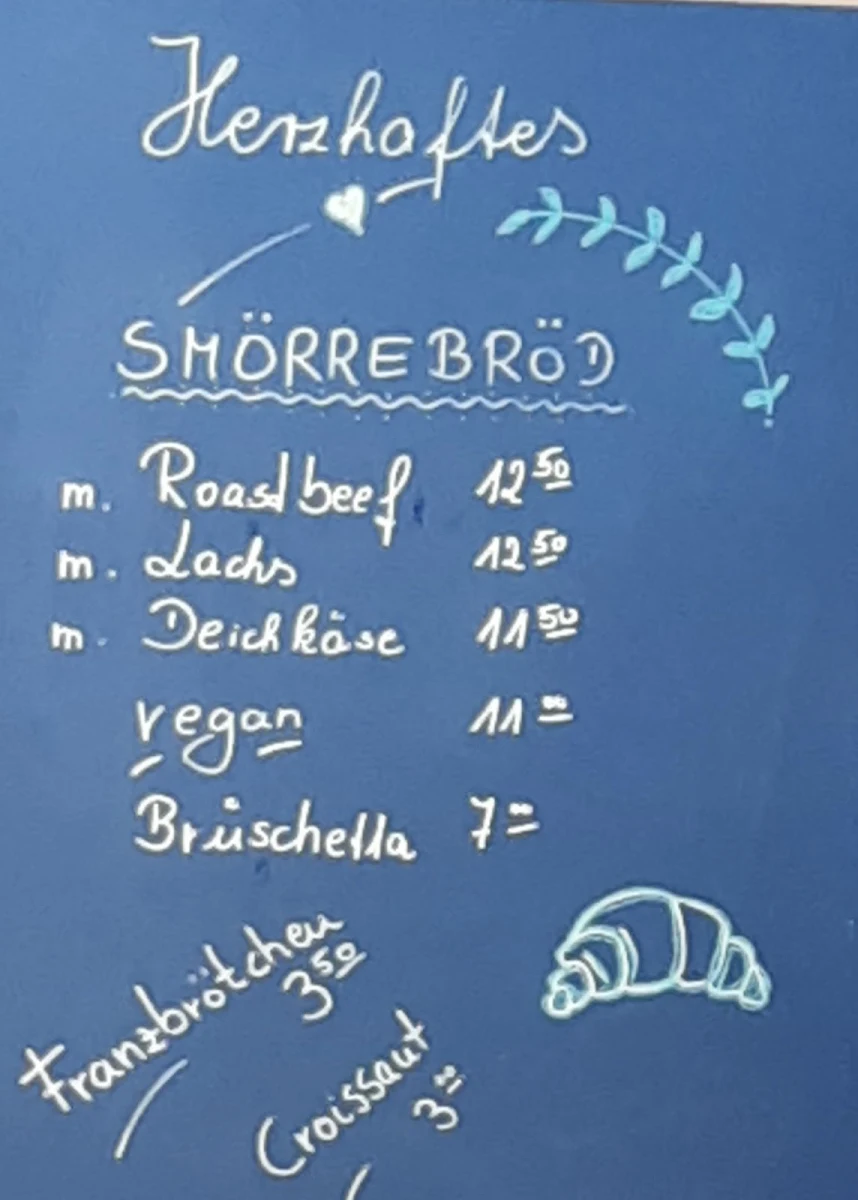 Herzhaftes
SMÖRREBRÖD
m. Roastbeef 12 50
m. Lachs 12 50
m. Deichkäse 11 50
vegan 11 00
Brüschetta 7 00
Franzbrötchen
3 50
Croissant
3 00